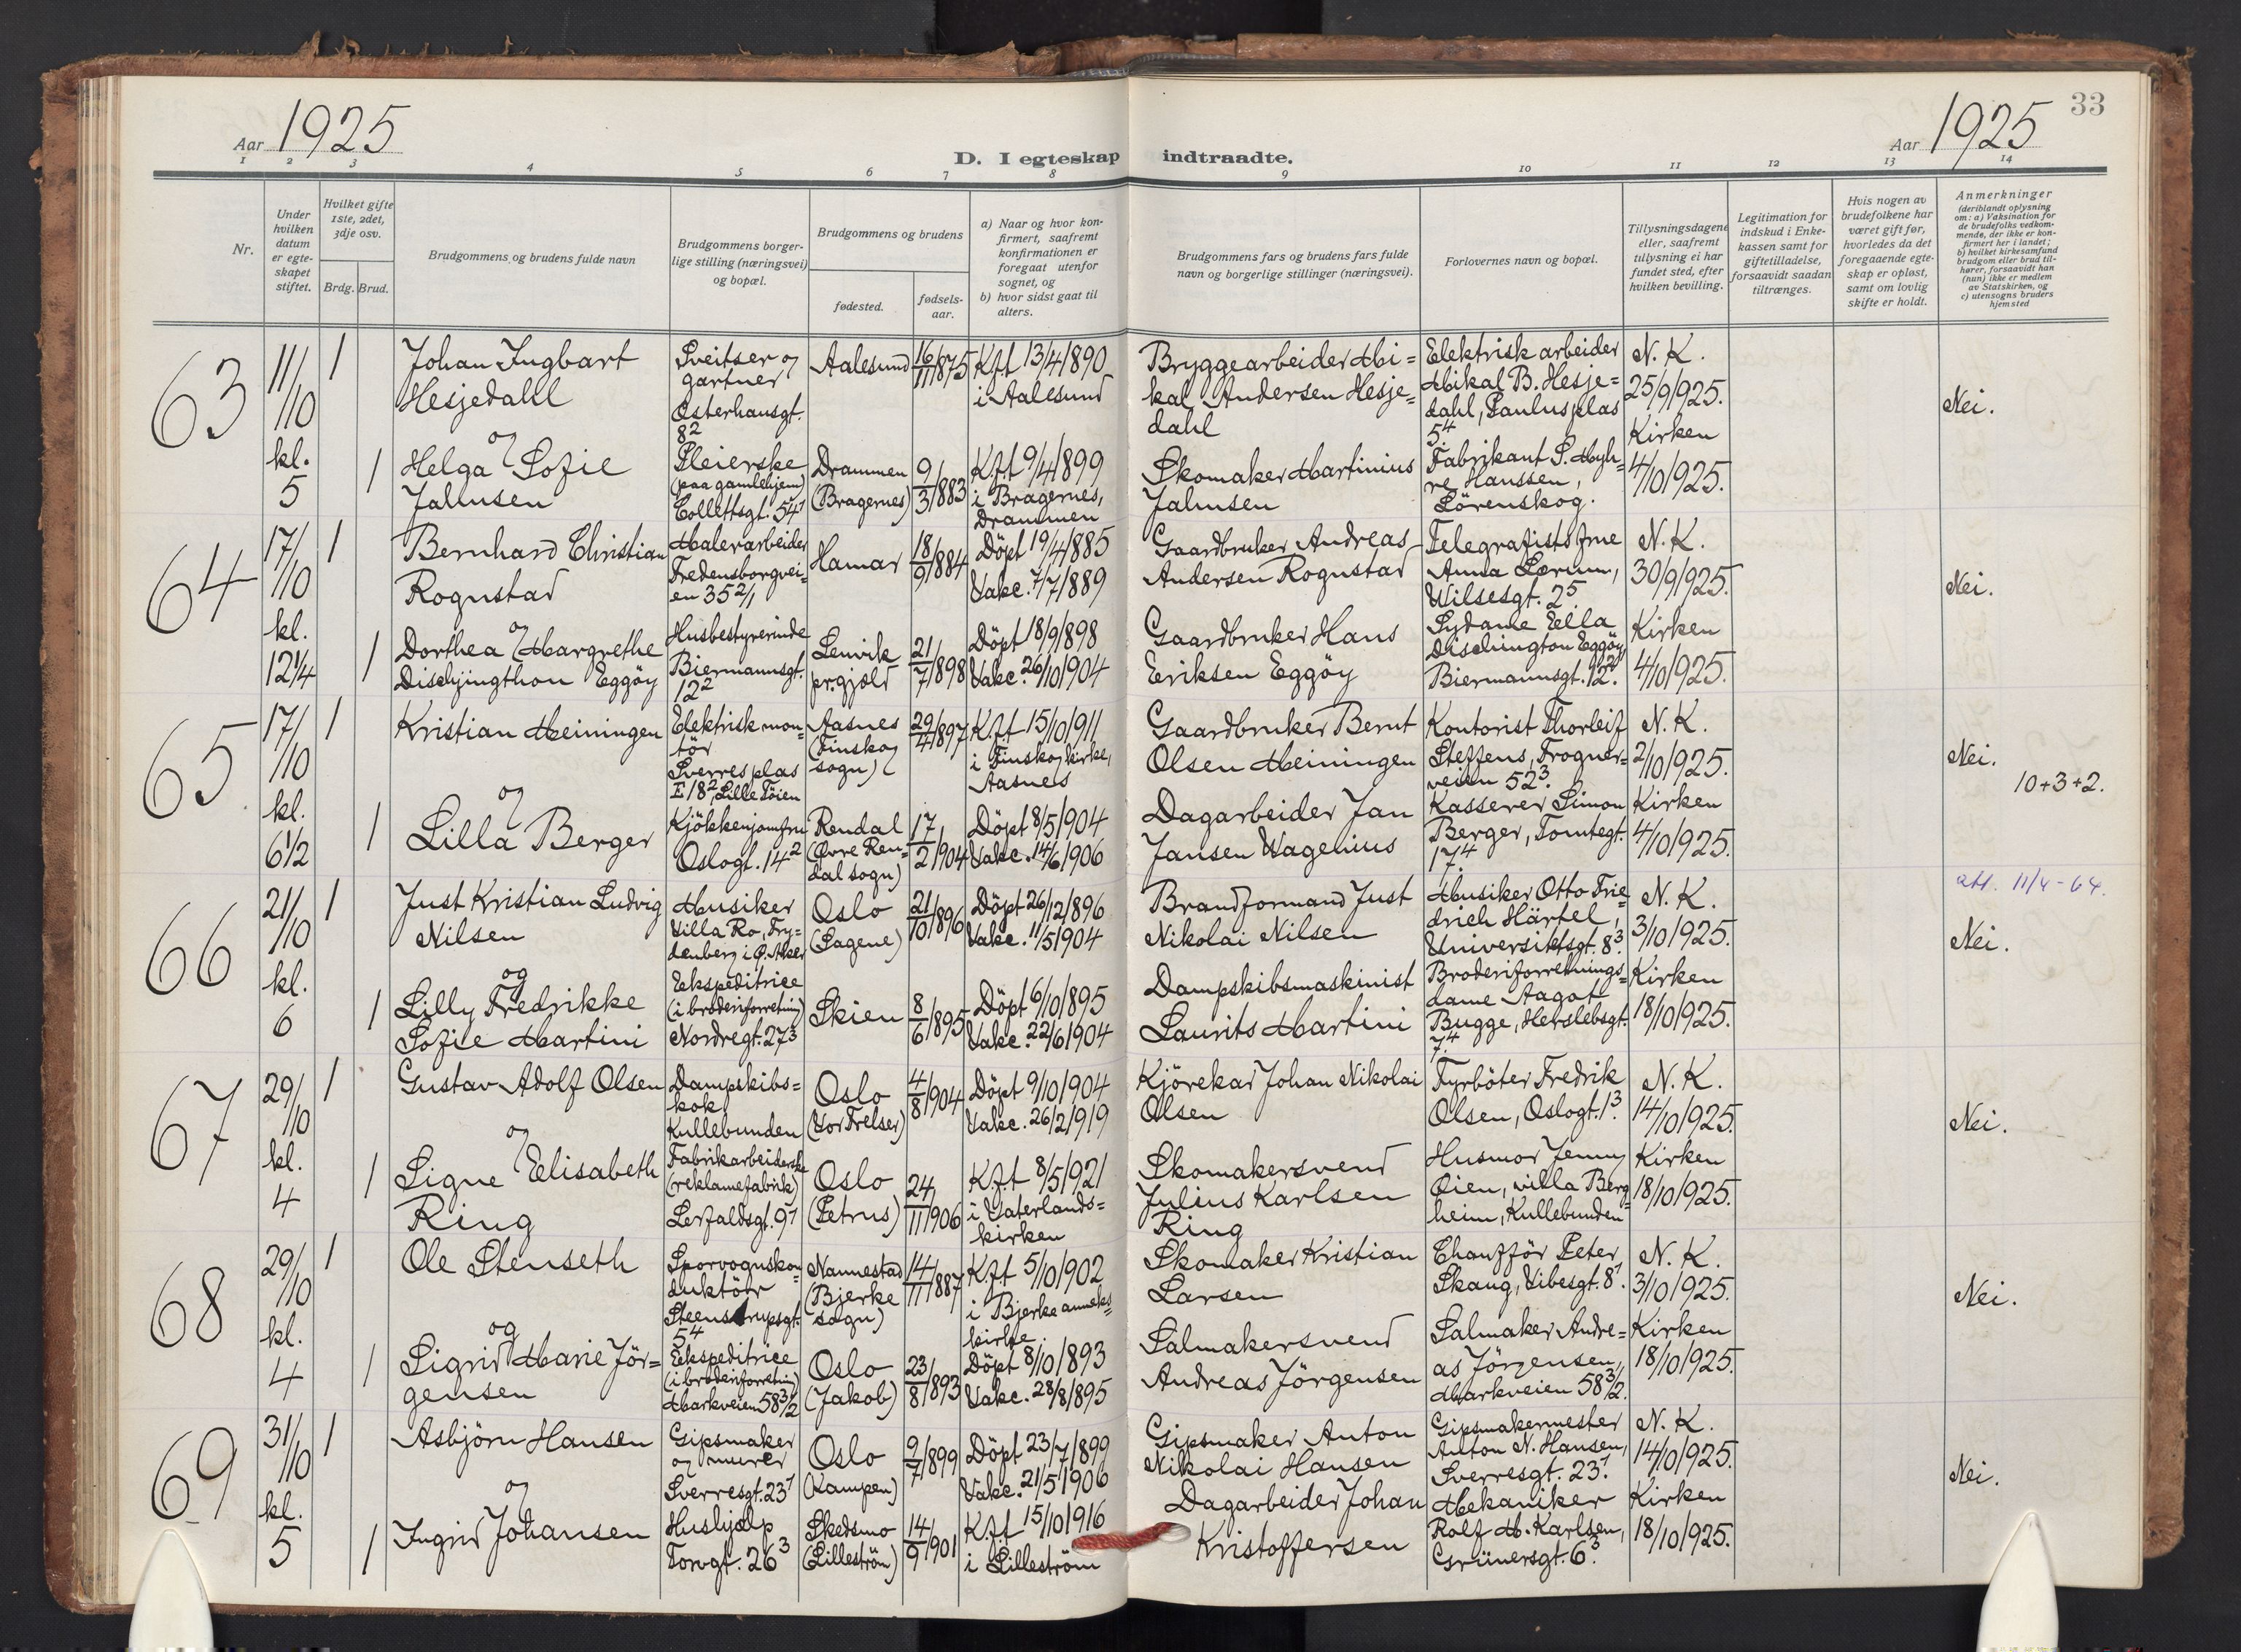 33
Aar 1925
Aar 1925
D. I egteskap indtraadte.
1 2 3 4 5 6 7 8 9 10 11 12 13 14
Nr.
Under
hvilken
datum
er egte-
skapet
stiftet.
Hvilket gifte
1ste, 2det,
3dje osv.
Brdg. Brud.
Brudgommens og brudens fulde navn
Brudgommens borger-
lige stilling (næringsvei)
og bopæl.
Brudgommens og brudens
fødested.
fødsels-
aar.
a) Naar og hvor kon-
firmert, saafremt
konfirmationen er
foregaat utenfor
sognet, og
b) hvor sidst gaat til
alters.
Brudgommens fars og brudens fars fulde
navn og borgerlige stillinger (næringsvei).
Forlovernes navn og bopæl.
Tillysningsdagene
eller, saafremt
tillysning ei har
fundet sted, efter
hvilken bevilling.
Legitimation for
indskud i Enke-
kassen samt for
giftetilladelse,
forsaavidt saadan
tiltrænges.
Hvis nogen av
brudefolkene har
været gift før,
hvorledes da det
foregaaende egte-
skap er opløst,
samt om lovlig
skifte er holdt.
Anmerkninger
(deriblandt oplysning
om: a) Vaksination for
de brudefolks vedkom-
mende, der ikke er kon-
firmert her i landet;
b) hvilket kirkesamfund
brudgom eller brud til-
hører, forsaavidt han
(hun) ikke er medlem
av Statskirken, og
c) utensogns bruders
hjemsted
63
11/10
kl.
5
1
Johan Ingbart
Hesjedahl
og
Sveitser og
gartner
Osterhausgt.
8²
Aalesund
16/11 1875
K.ft 13/4 1890
i Aalesund
Bryggearbeider Mi=
kal Andersen Hesje=
dahl
Elektrisk arbeider
Mikal B. Hesje=
dahl, Paulus plas
5⁴
N. K.
25/9 1925.
Kirken
4/10 1925.
Nei.
1
Helga Sofie
Jahnsen
Pleierske
(paa gamlehjem)
Collettsgt. 54¹
Drammen
(Bragernes)
9/3 1883
K.ft 9/4 1899
i Bragernes,
Drammen
Skomaker Martinius
Jahnsen
Fabrikant S. Myh=
re Hanssen,
Lörenskog.
64
17/10
kl.
12¼
1
Bernhard Christian
Rognstad
og
Malerarbeider
Fredensborgvei=
en 35 2/1
Hamar
18/9 1884
Döpt 19/4 1885
Vakc. 7/7 1889
Gaardbruker Andreas
Andersen Rognstad
Telegrafists frue
Anna Lærum,
Wilsesgt. 2⁵
N. K.
30/9 1925.
Kirken
4/10 1925.
Nei.
1
Dorthea Margrethe
Dischingthon Eggöy
Husbestyrerinde
Biermannsgt.
12²
Lenvik
pr.gjeld
21/7 1898
Döpt 18/9 1898
Vakc. 26/10 1904
Gaardbruker Hans
Eriksen Eggöy
Sydame Ella
Dischington Eggöy
Biermannsgt. 12²
65
17/10
kl.
6½
1
Kristian Meiningen
og
Elektrisk mon=
tör
Sverres plas
E 18², Lille Töien
Aasnes
(Finskog
sogn)
29/4 1897
K.ft 15/10 1911
i Finskog kirke,
Aasnes
Gaardbruker Bernt
Olsen Meiningen
Kontorist Thorleif
Steffens, Frogner=
veien 52³.
N. K.
2/10 1925.
Kirken
4/10 1925.
Nei.
10+3+2.
1
Lilla Berger
Kjökkenjomfru
Oslogt. 14²
Rendal
(Övre Ren=
dal sogn)
17/2 1904
Döpt 8/5 1904
Vakc. 14/6 1906
Dagarbeider Jan
Jansen Wagenius
Kasserer Simon
Berger, Tomtegt.
17⁴
66
21/10
kl.
6
1
Just Kristian Ludvig
Nilsen
og
Musiker
Villa Ro, Fry=
denberg i Ö. Aker
Oslo
(Sagene)
21/10 1896
Döpt 26/12 1896
Vakc. 11/5 1904
Brandformand Just
Nikolai Nilsen
Musiker Otto Frie=
drich Härtel,
Universitetsgt. 8³
N. K.
3/10 1925.
Kirken
18/10 1925.
att. 11/4-64.
Nei.
1
Lilly Fredrikke
Sofie Martini
Ekspeditrice
(i broderiforretning)
Nordregt. 27³
Skien
8/6 1895
Döpt 6/10 1895
Vakc. 22/6 1904
Dampskibsmaskinist
Laurits Martini
Broderiforretnings=
dame Aagot
Bugge, Herslebsgt.
7⁴
67
29/10
kl.
4
1
Gustav Adolf Olsen
og
Dampskibs=
kok
Kullebunden
Oslo
(Vor Frelser)
4/8 1904
Döpt 9/10 1904
Vakc. 26/2 1919
Kjörekar Johan Nikolai
Olsen
Fyrböter Fredrik
Olsen, Oslogt. 1³
N. K.
14/10 1925.
Kirken
18/10 1925.
Nei.
1
Signe Elisabeth
Ring
Fabrikarbeiderske
(reklamefabrik)
Lerfaldsgt. 9¹
Oslo
(Petrus)
24/11 1906
K.ft 8/5 1921
i Vaterlands=
kirken
Skomakersvend
Julius Karlsen
Ring
Husmor Jenny
Öien, villa Berg=
heim, Kullebunden
68
29/10
kl.
4
1
Ole Stenseth
og
Sporvognskon=
duktör
Steenstrupsgt.
5⁴
Nannestad
(Bjerke
sogn)
14/11 1887
K.ft 5/10 1902
i Bjerke anneks=
kirke
Skomaker Kristian
Larsen
Chaufför Peter
Skaug, Vibesgt. 8¹.
N. K.
3/10 1925.
Kirken
18/10 1925.
Nei.
1
Sigrid Marie Jör=
gensen
Ekspeditrice
(i broderiforretning)
Markveien 58 3/2
Oslo
(Jakob)
23/8 1893
Döpt 8/10 1893
Vakc. 28/8 1895
Salmakersvend
Andreas Jörgensen
Salmaker Andre=
as Jörgensen,
Markveien 58 3/2.
69
31/10
kl.
5
1
Asbjörn Hansen
og
Gipsmaker
og murer
Sverresgt. 23¹
Oslo
(Kampen)
9/7 1899
Döpt 23/7 1899
Vakc. 21/5 1906
Gipsmaker Anton
Nikolai Hansen
Gipsmakermester
Anton N. Hansen,
Sverresgt. 23¹.
N. K.
14/10 1925.
Kirken
18/10 1925.
Nei.
1
Ingrid Johansen
Hushjælp
Torvgt. 26³
Skedsmo
(Lilleström)
14/9 1901
K.ft 15/10 1916
i Lilleström
Dagarbeider Johan
Kristoffersen
Mekaniker
Rolf M. Karlsen,
Grünersgt. 6³.